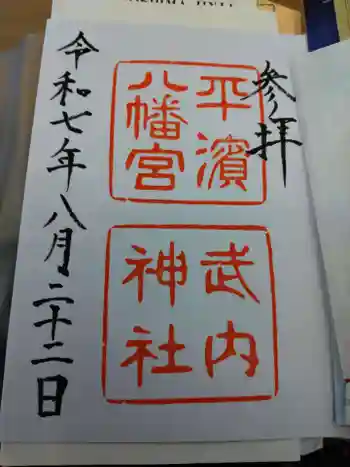 参拝
平濱
八幡宮
武内
神社
令和七年八月二十二日